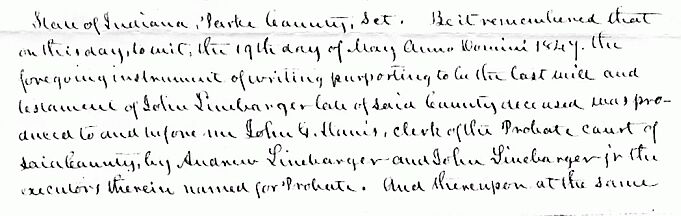 State of Indiana, Parke County, Set. Be it remembered that
on this day, to wit, the 19th day of May Anno Domini 1847. the
foregoing instrument of writing purporting to be the last will and
testament of John Linebarger late of said County deceased was pro-
duced to and before me John G. Davis, clerk of the Probate court of
said County, by Andrew Linebarger and John Linebarger jr the
executors therein named for Probate. And thereupon at the same